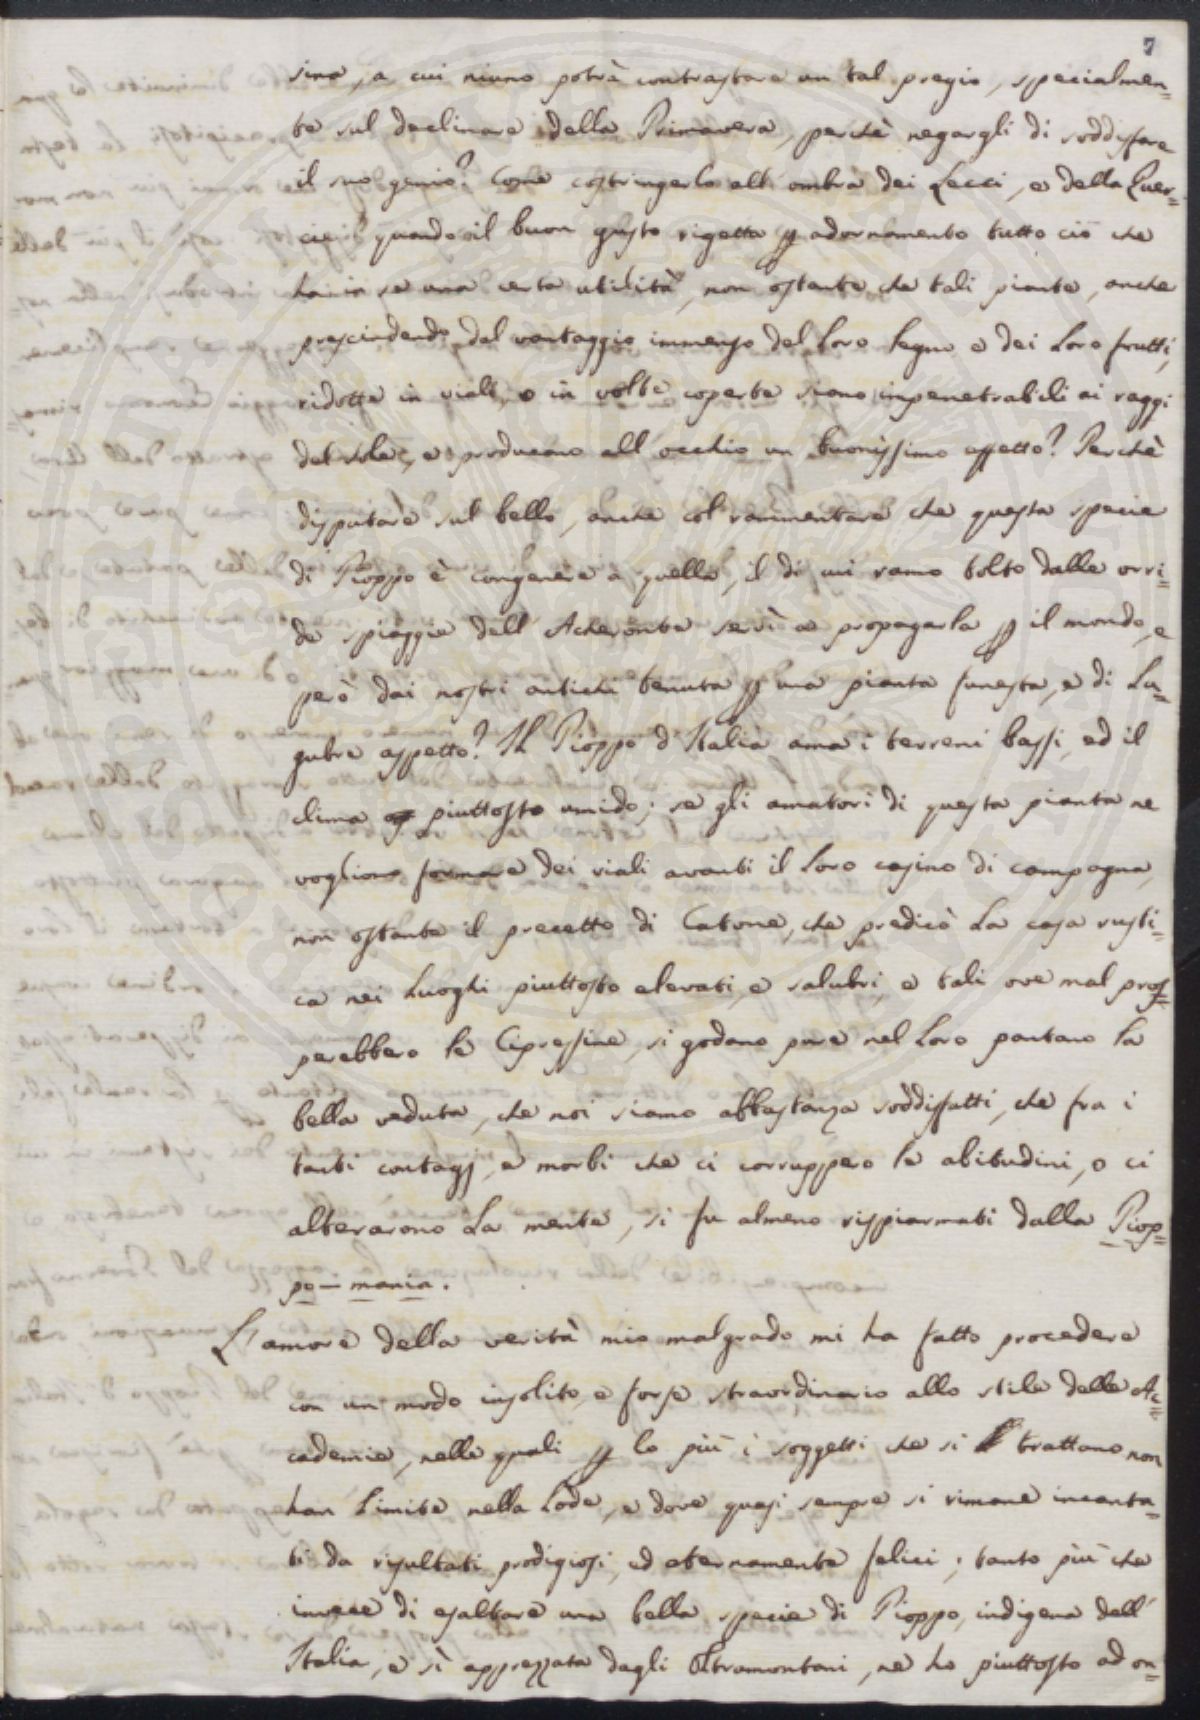 7
sina, a cui niuno potrà contrastare un tal pregio, specialmen=
te sul declinare della Primavera, perchè negargli di soddisfare
il suo genio? Come costringerlo all' ombra dei Lecci, e della Quer=
cie quando il buon gusto rigetta p adornamento tutto ciò che
ha in se una certa utilità, non ostante che tali piante, anche
prescindendo dal vantaggio immenso del Loro legno e dei Loro frutti,
ridotte in viali, o in volte coperte siano impenetrabili ai raggi
del sole, e producano all' occhio un buonissimo effetto? Perchè
disputare sul bello, anche col rammentare che questa specie
di Pioppo è congenere a quella, il di cui ramo tolto dalle orri=
de spiaggie dell' Acheronte servì a propagarla p il mondo, e
però dai nostri antichi tenuta p una pianta funesta, e di Lu=
gubre aspetto? Il Pioppo d' Italia ama i terreni bassi, ed il
clima piuttosto umido; se gli amatori di questa pianta ne
vogliono formare dei viali avanti il Loro casino di campagna,
non ostante il precetto di Catone, che predicò La casa rusti=
ca nei Luoghi piuttosto elevati, e salubri, e tali ove mal pros=
perebbero le Cipressine, si godano pure nel Loro pantano la
bella veduta, che noi siamo abbastanza soddisfatti, che fra i
tanti contagj, e morbi che ci corruppero le abitudini, o ci
alterarono La mente, si fu almeno risparmiati dalla Piop=
po-mania.
L' amore della verità mio malgrado mi ha fatto procedere
con un modo insolito, e forse straordinario allo stile delle Ac=
cademie, nelle quali p lo più i soggetti che si trattano non
han Limite nella Lode, e dove quasi sempre si rimane incanta=
ti da risultati prodigiosi, ed eternamente felici; tanto più che
invece di esaltare una bella specie di Pioppo, indigena dell'
Italia, e sì apprezzata dagli Oltramontani, ne ho piuttosto ad on=